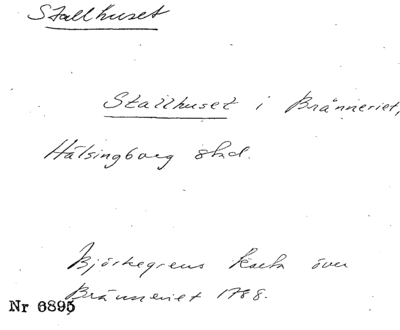 Stallhuset
Stallhuset i Bränneriet,
Hälsingborg stad.
Björkegrens karta över
Bränneriet 1788.
Nr 6895